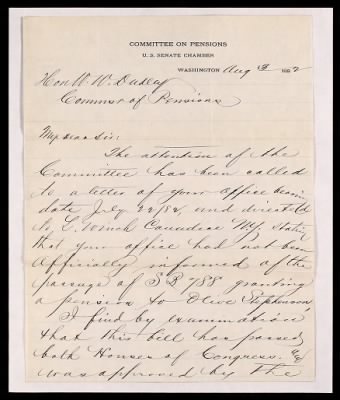 COMMITTEE ON PENSIONS
U. S. SENATE CHAMBER
WASHINGTON Aug 3 1882
Hon W. W. Dudley
Commsr of Pensions
My dear Sir:
The attention of the
Committee has been called
to a letter of your Office bearing
date July 22/82 and directed
to L. Canadea N.Y. stating
that your office had not been
Officially informed of the
passage of S B 788 granting
a pension to Olive Stephenson,
I find by examination
that this bill has passed
both Houses of Congress, and
was approved by the